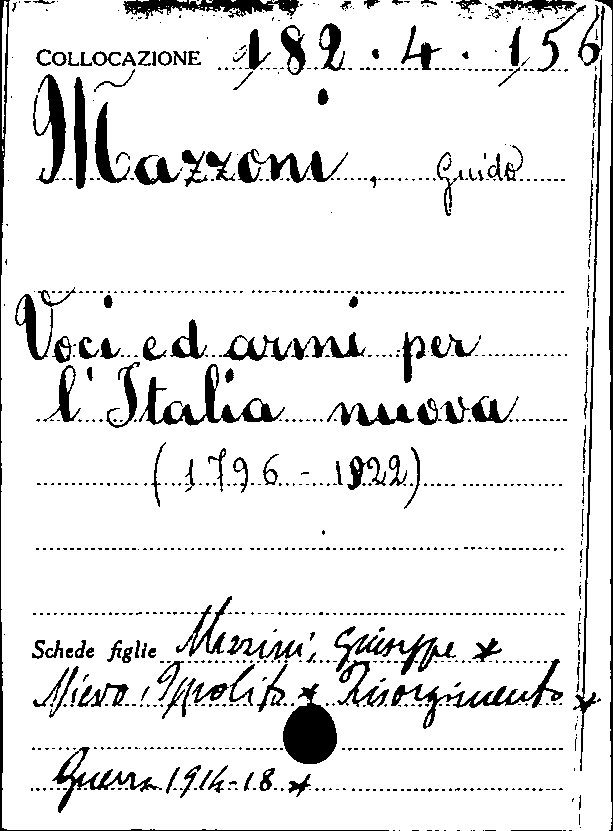 COLLOCAZIONE 182.4.156
Mazzoni, Guido
Voci ed armi per
l'Italia nuova
(1796-1922)
Schede figlie Mazzini, Giuseppe *
Nievo, Ippolito * Risorgimento *
Guerra 1914-18 *